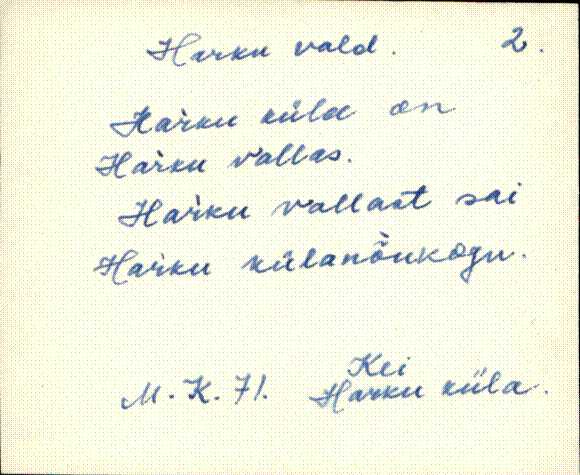 Harku vald. 2.
Haŕku küla on
Haŕku vallas.
Haŕku vallast sai
Haŕku külanõukogu.
Kei
M. K. 71. Harku küla.